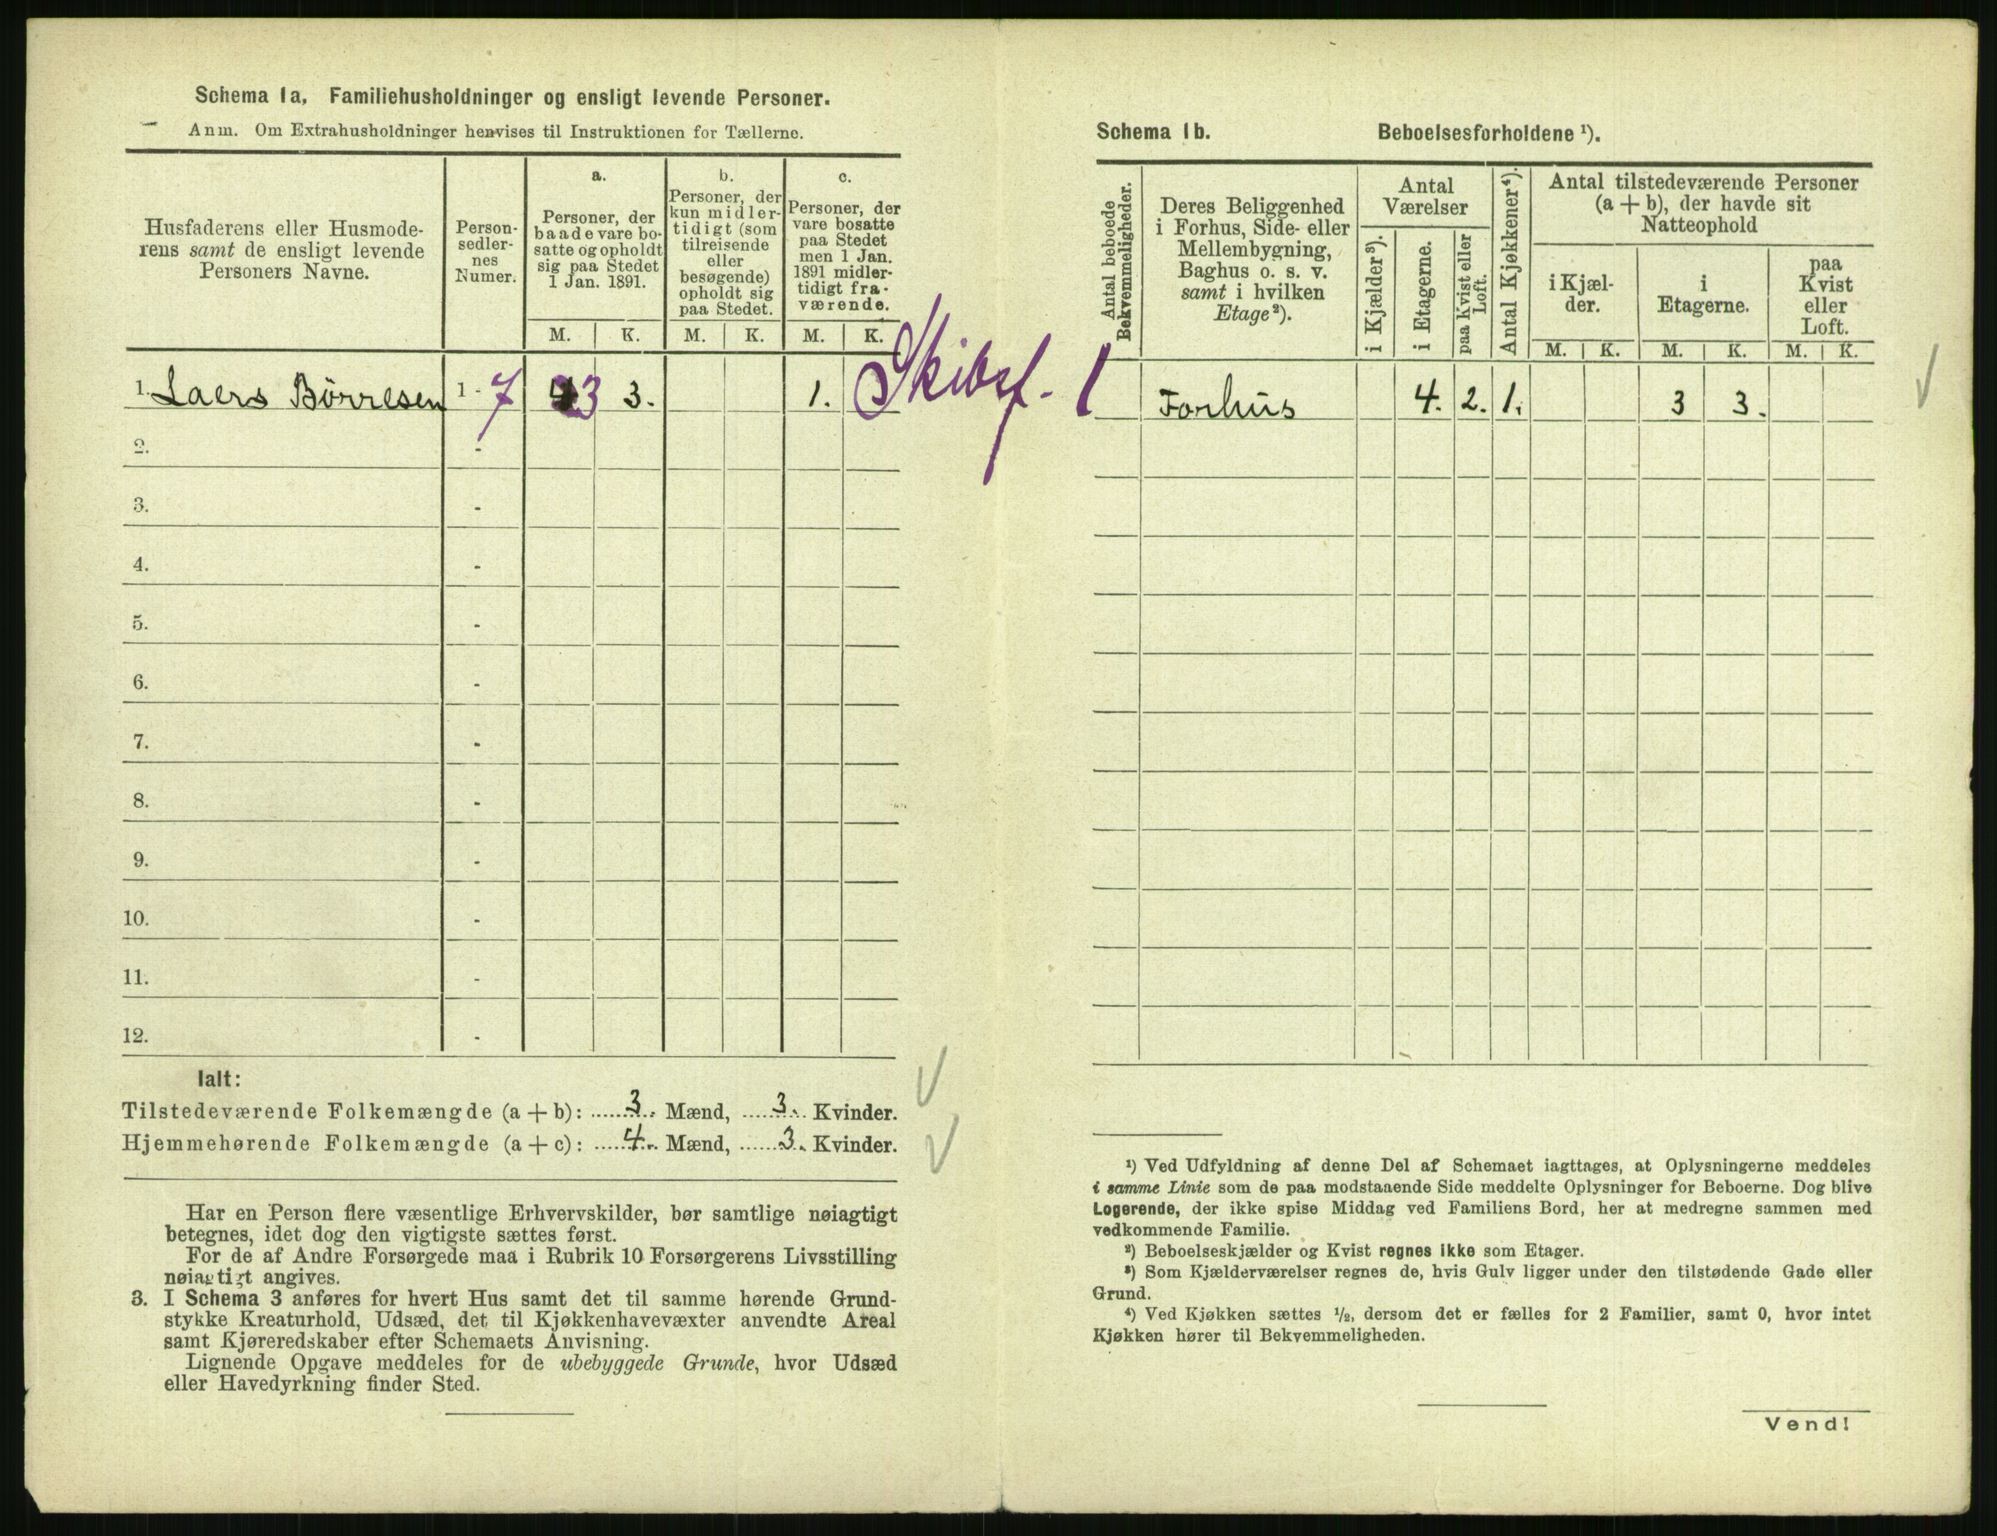 Schema 1a, Familiehusholdninger og ensligt levende Personer.
Anm. Om Extrahusholdninger henvises til Instruktionen for Tællerne.
Husfaderens eller Husmode-
rens samt de ensligt levende
Personers Navne.
Person-
sedler-
nes
Numer.
a.
Personer, der
baade vare bo-
satte og opholdt
sig paa Stedet
1 Jan. 1891.
b.
Personer, der
kun midler-
tidigt (som
tilreisende
eller
besøgende)
opholdt sig
paa Stedet.
c.
Personer, der
vare bosatte
paa Stedet
men 1 Jan.
1891 midler-
tidigt fra-
værende.
M. K. M. K. M. K.
1. Laers Börresen 1 - 7 3 3. 1. Skibsf.
2. -
3. -
4. -
5. -
6. -
7. -
8. -
9. -
10. -
11. -
12. -
Ialt:
Tilstedeværende Folkemængde (a + b): 3. Mænd, 3. Kvinder.
Hjemmehørende Folkemængde (a + c): 4. Mænd, 3. Kvinder.
Har en Person flere væsentlige Erhvervskilder, bør samtlige nøiagtigt
betegnes, idet dog den vigtigste sættes først.
For de af Andre Forsørgede maa i Rubrik 10 Forsørgerens Livsstilling
nøiagtigt angives.
3. I Schema 3 anføres for hvert Hus samt det til samme hørende Grund-
stykke Kreaturhold, Udsæd, det til Kjøkkenhavevæxter anvendte Areal
samt Kjøreredskaber efter Schemaets Anvisning.
Lignende Opgave meddeles for de ubebyggede Grunde, hvor Udsæd
eller Havedyrkning finder Sted.
Schema 1b. Beboelsesforholdene ¹).
Antal beboede
Bekvemmeligheder.
Deres Beliggenhed
i Forhus, Side- eller
Mellembygning,
Baghus o. s. v.
samt i hvilken
Etage²).
Antal
Værelser
i Kjælder³).
i Etagerne.
paa Kvist eller
Loft.
Antal Kjøkkener⁴).
Antal tilstedeværende Personer
(a + b), der havde sit
Natteophold
i Kjæl-
der.
i
Etagerne.
paa
Kvist
eller
Loft.
M. K. M. K. M. K.
1 Forhus 4. 2. 1. 3 3.
¹) Ved Udfyldning af denne Del af Schemaet iagttages, at Oplysningerne meddeles
i samme Linie som de paa modstaaende Side meddelte Oplysninger for Beboerne. Dog blive
Logerende, der ikke spise Middag ved Familiens Bord, her at medregne sammen med
vedkommende Familie.
²) Beboelseskjælder og Kvist regnes ikke som Etager.
³) Som Kjælderværelser regnes de, hvis Gulv ligger under den tilstødende Gade eller
Grund.
⁴) Ved Kjøkken sættes ½, dersom det er fælles for 2 Familier, samt 0, hvor intet
Kjøkken hører til Bekvemmeligheden.
Vend!